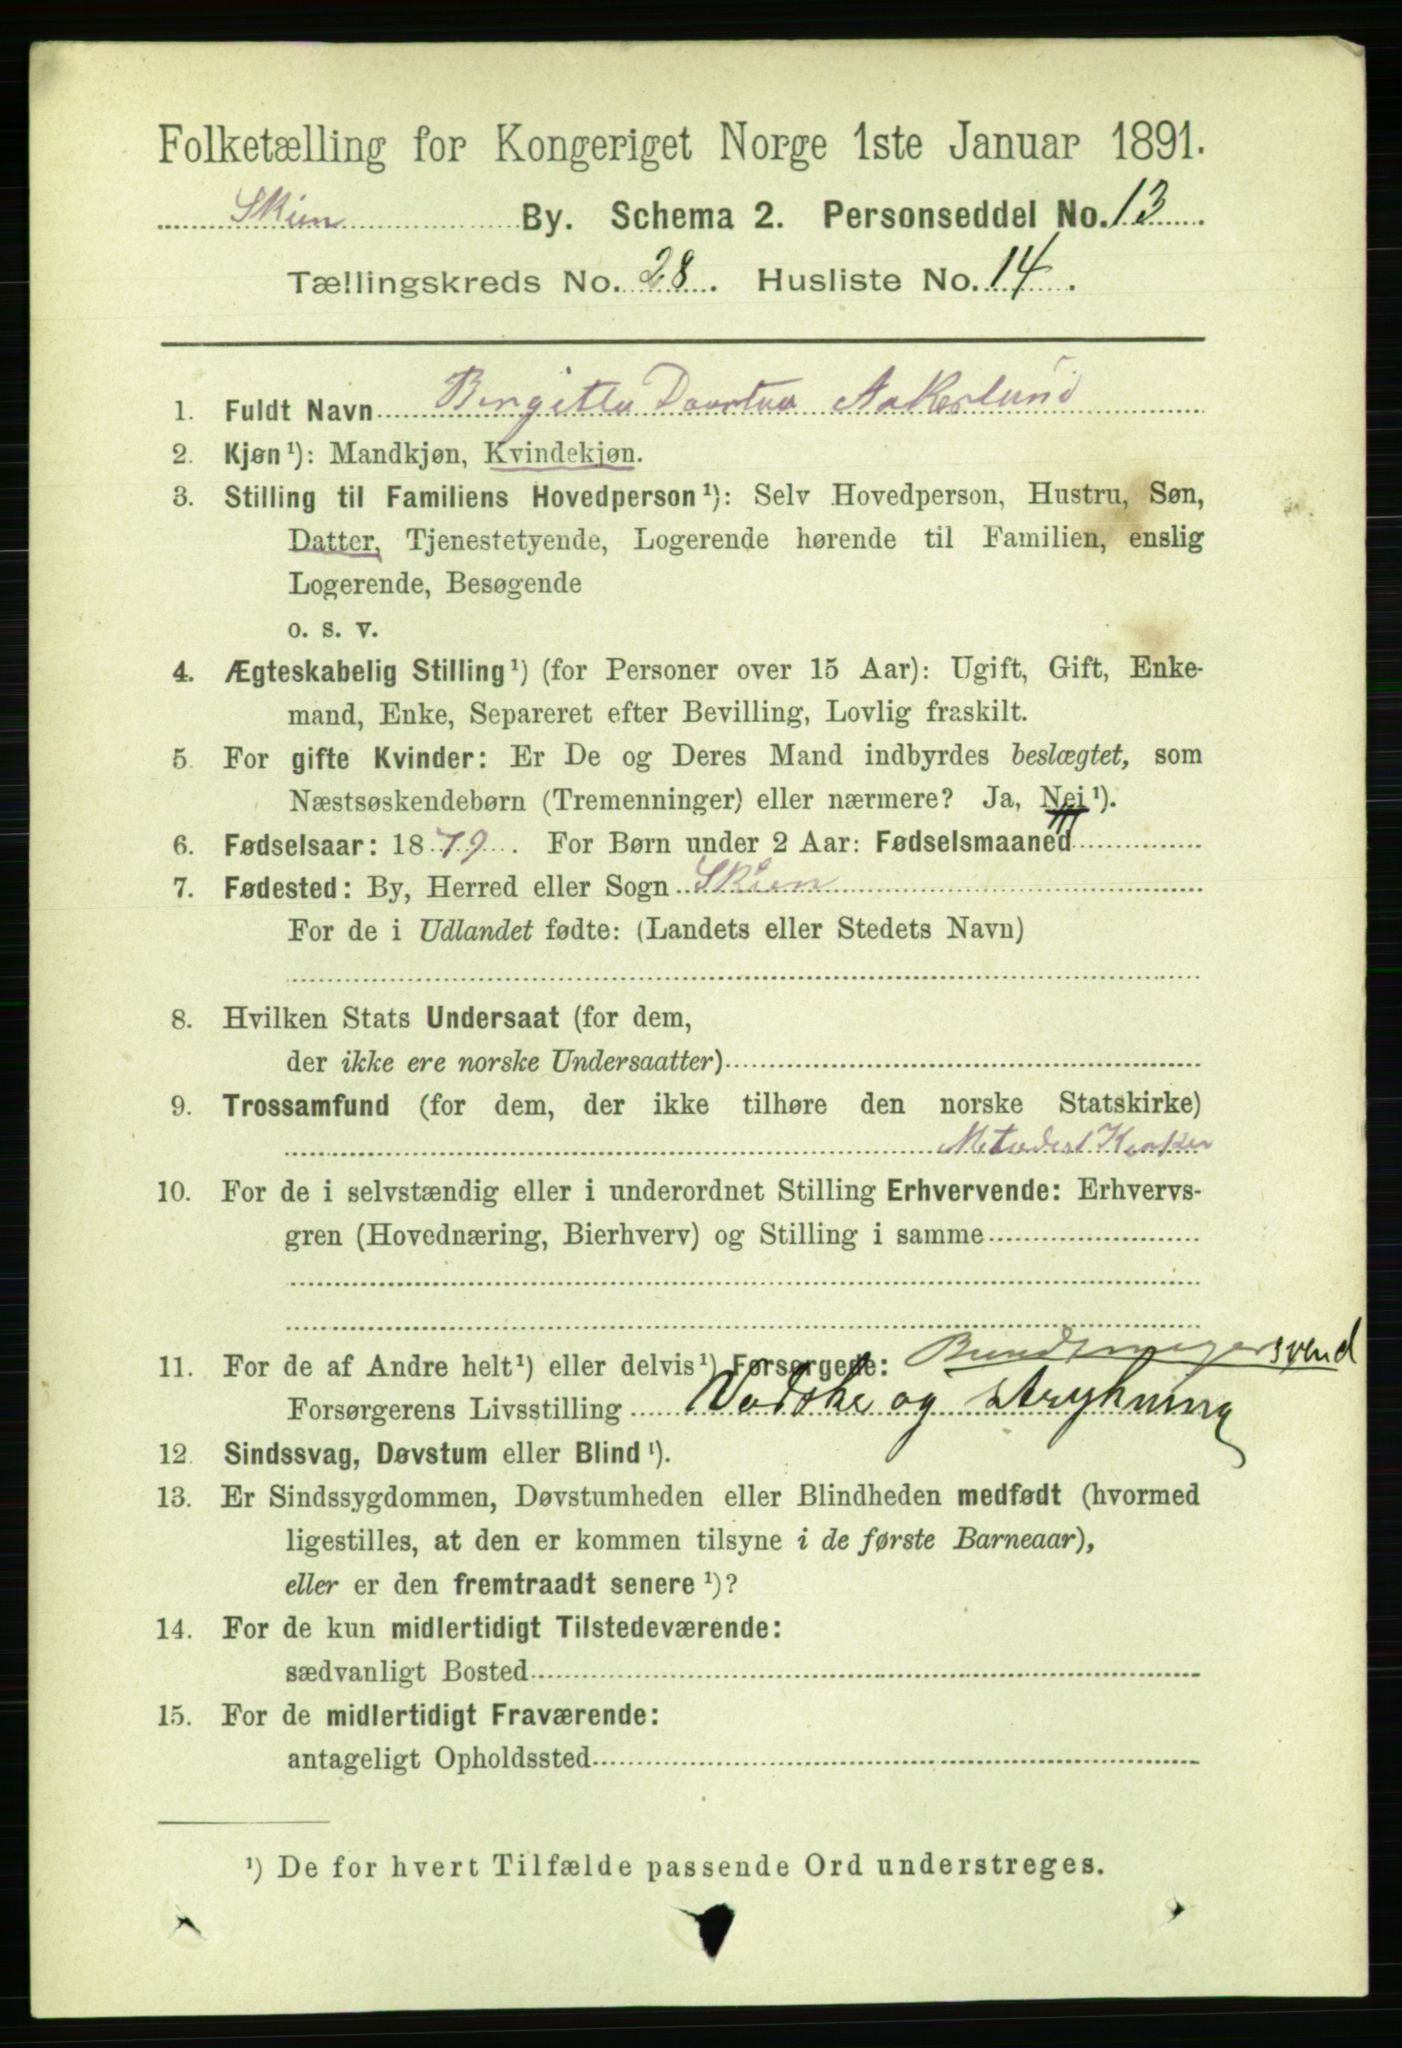 Folketælling for Kongeriget Norge 1ste Januar 1891.
Skien By. Schema 2. Personseddel No. 13
Tællingskreds No. 28. Husliste No. 14.
1. Fuldt Navn Birgitte Aakerlund
2. Kjøn¹): Mandkjøn, Kvindekjøn.
3. Stilling til Familiens Hovedperson¹): Selv Hovedperson, Hustru, Søn,
Datter, Tjenestetyende, Logerende hørende til Familien, enslig
Logerende, Besøgende
o. s. v.
4. Ægteskabelig Stilling¹) (for Personer over 15 Aar): Ugift, Gift, Enke-
mand, Enke, Separeret efter Bevilling, Lovlig fraskilt.
5. For gifte Kvinder: Er De og Deres Mand indbyrdes beslægtet, som
Næstsøskendebørn (Tremenninger) eller nærmere? Ja, Nei¹).
6. Fødselsaar: 1879. For Børn under 2 Aar: Fødselsmaaned
7. Fødested: By, Herred eller Sogn Skien
For de i Udlandet fødte: (Landets eller Stedets Navn)
8. Hvilken Stats Undersaat (for dem,
der ikke ere norske Undersaatter)
9. Trossamfund (for dem, der ikke tilhøre den norske Statskirke)
10. For de i selvstændig eller i underordnet Stilling Erhvervende: Erhvervs-
gren (Hovednæring, Bierhverv) og Stilling i samme
11. For de af Andre helt¹) eller delvis¹) Forsørgede: Bundtmagersvend
Forsørgerens Livsstilling Vadske og strykning
12. Sindssvag, Døvstum eller Blind¹).
13. Er Sindssygdommen, Døvstumheden eller Blindheden medfødt (hvormed
ligestilles, at den er kommen tilsyne i de første Barneaar),
eller er den fremtraadt senere¹)?
14. For de kun midlertidigt Tilstedeværende:
sædvanligt Bosted
15. For de midlertidigt Fraværende:
antageligt Opholdssted
¹) De for hvert Tilfælde passende Ord understreges.